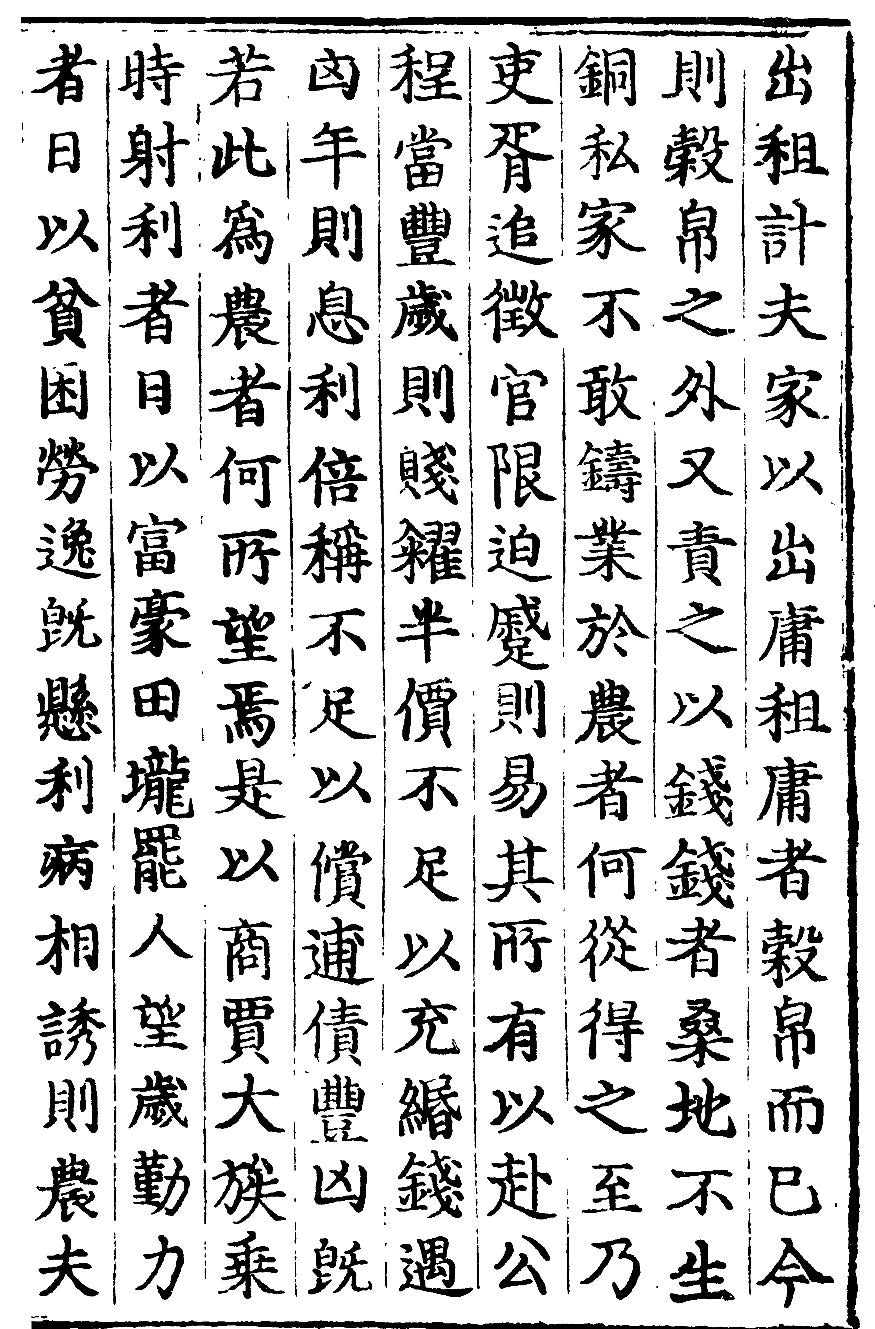 出租計夫家以出庸租庸者穀帛而已今
則穀帛之外又責之以錢錢者桑地不生
銅私家不敢鑄業於農者何從得之至乃
吏胥追徴官限迫蹙則易其所有以赴公
程當豐歲則賤糴半價不足以充緡錢遇
凶年則息利倍稱不足以償逋債豐凶旣
若此爲農者何所望焉是以商賈大族乗
時射利者日以富豪田壠罷人望歲勤力
者日以貧困勞逸旣懸利病相誘則農夫